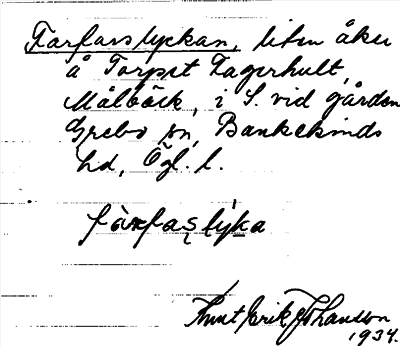 Farfarslyckan, liten åker
å Torpet Lagerhult,
Målbäck, i S. vid gården
Grebo sn, Bankekinds
hd, Ögl. l.
fàrfaslýka
Knut Erik Johansson
1934.